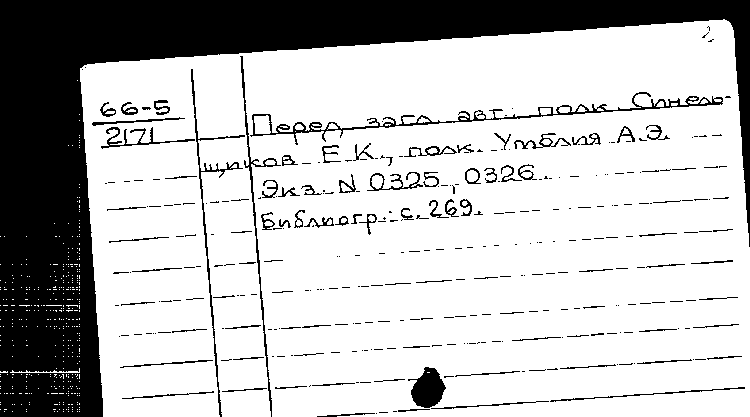 2
66-5
2171
Перед загл. авт.: полк. Синель-
щиков Е.К., полк. Утблия А.Э.
Экз. N 0325, 0326.
Библиогр.: с. 269.